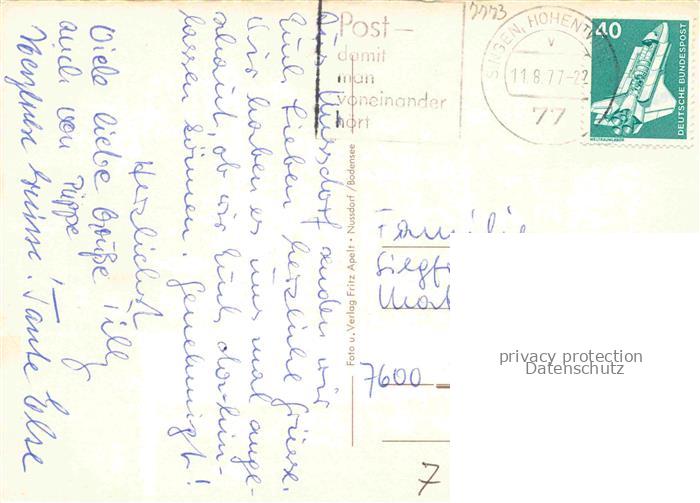 Post –
damit
man
voneinander
hört
7773
SINGEN, HOHENTW
v
11.8.77-22
77
40
DEUTSCHE BUNDESPOST
WELTRAUMLABOR
senden wir
Euch Lieben herzliche Grüsse.
Wir haben es uns mal ange-
schaut, ob wir Euch dorthin-
lassen können. Genehmigt!
Herzlichst
Viele liebe Grüße
auch von
Grüsse! Tante Else
Foto u. Verlag Fritz Apelt · Nussdorf/Bodensee
Familie
7600
7
privacy protection
Datenschutz